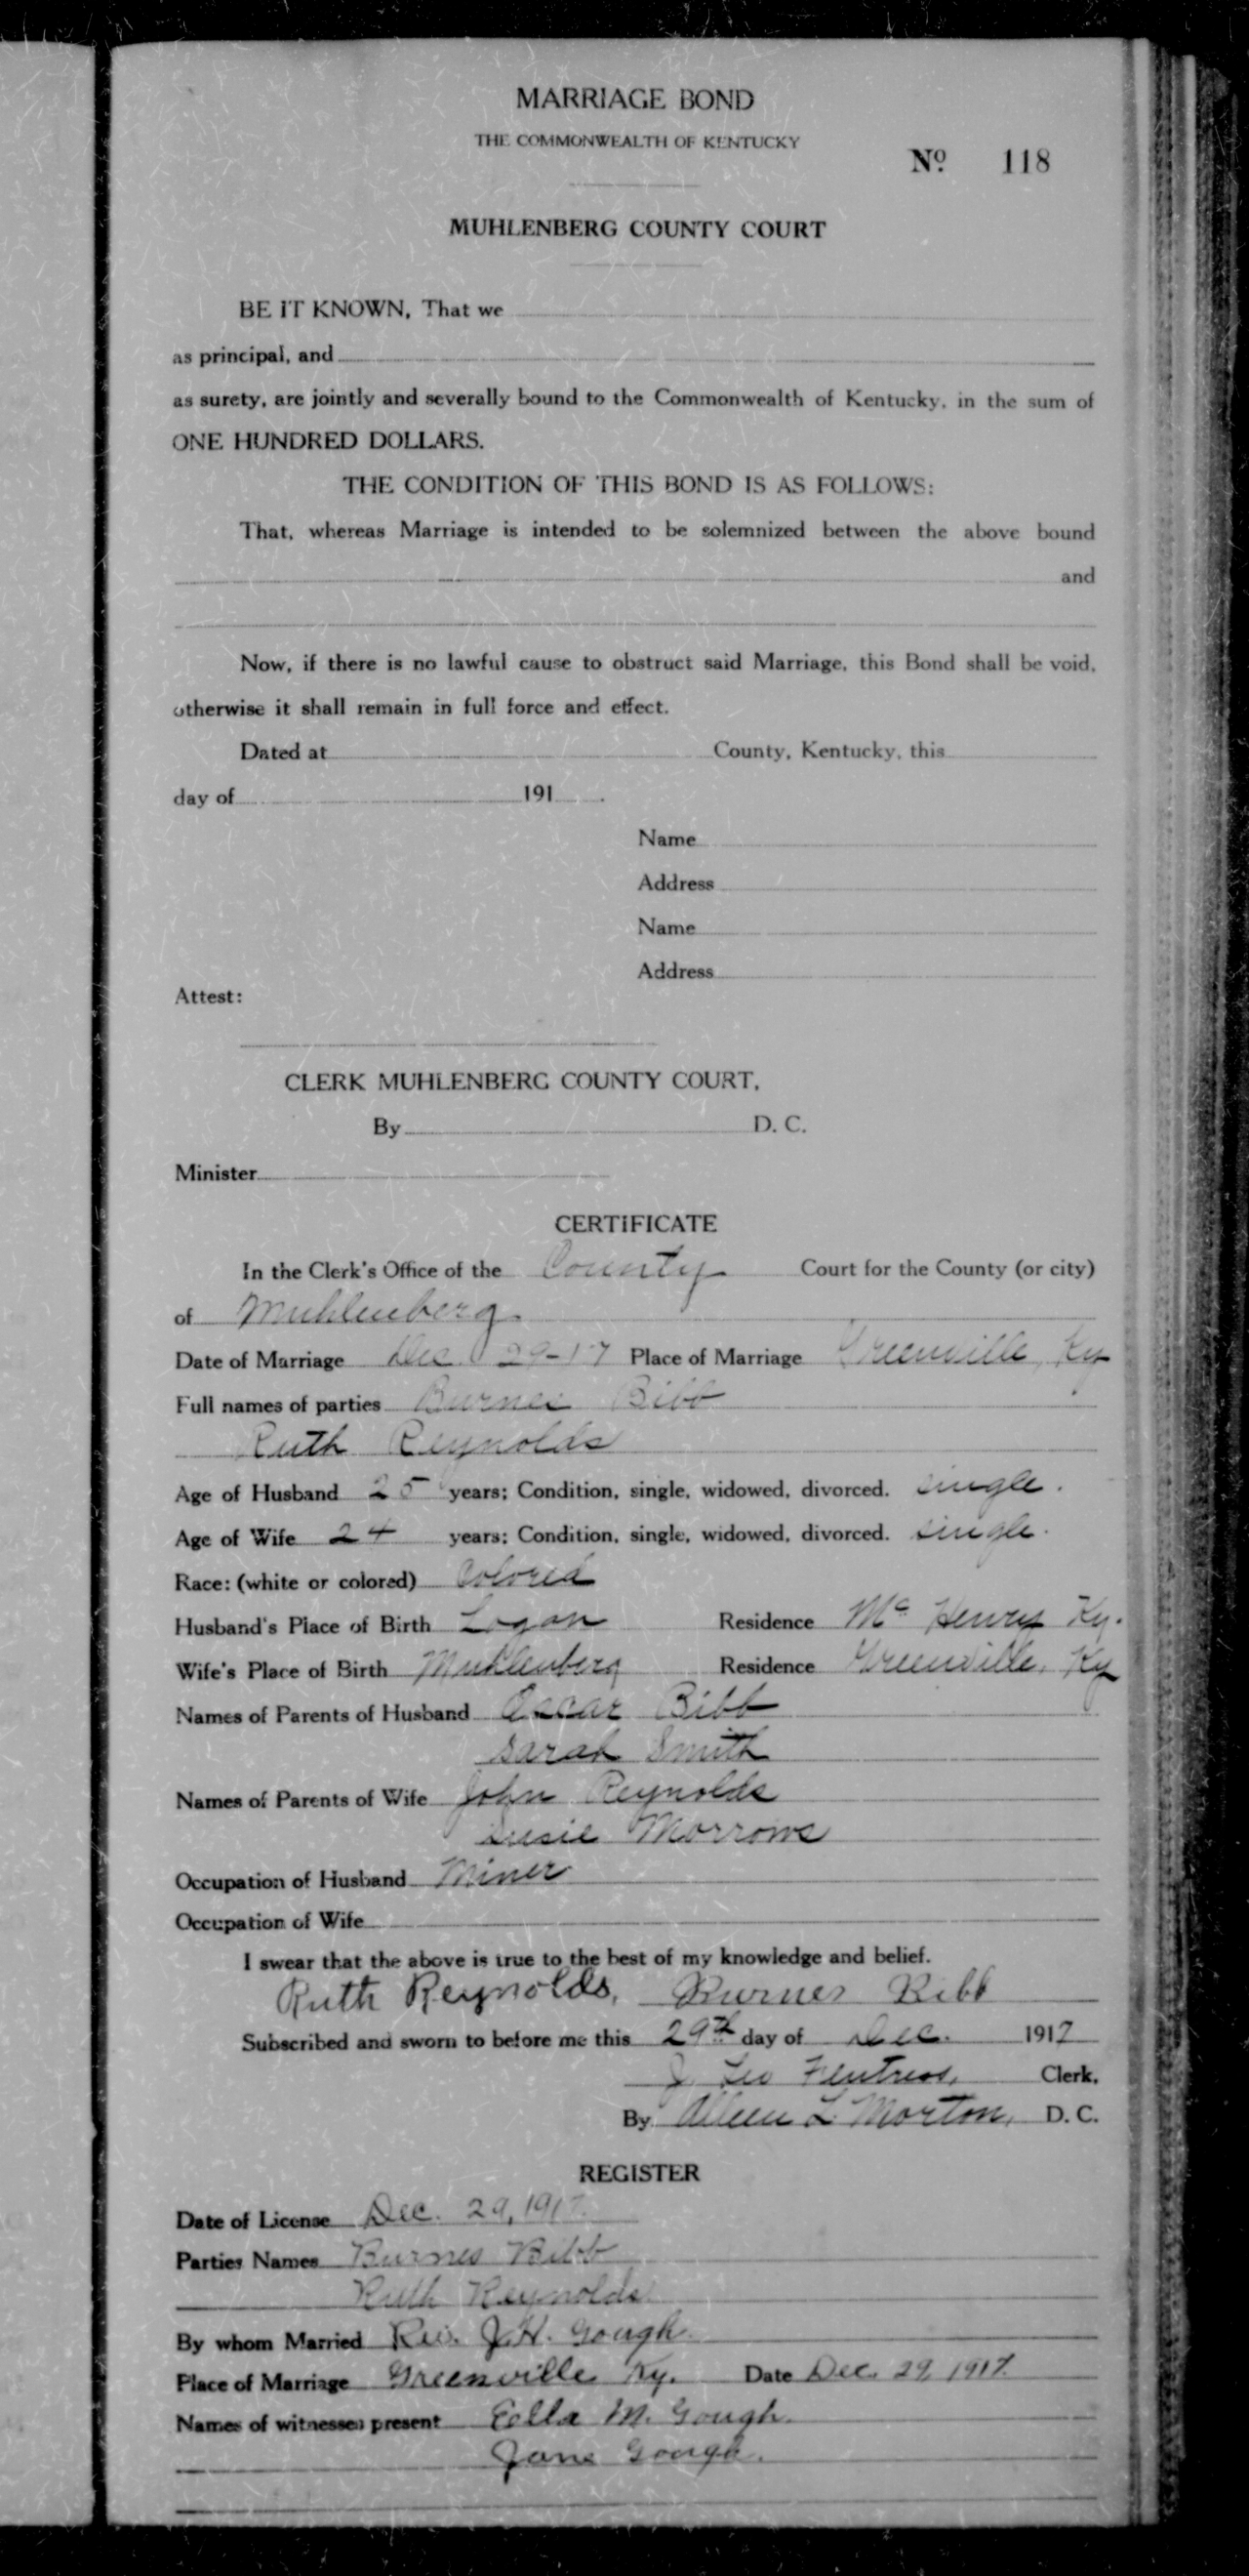 MARRIAGE BOND
THE COMMONWEALTH OF KENTUCKY
Nº 118
MUHLENBERG COUNTY COURT
BE IT KNOWN, That we
as principal, and
as surety, are jointly and severally bound to the Commonwealth of Kentucky, in the sum of
ONE HUNDRED DOLLARS.
THE CONDITION OF THIS BOND IS AS FOLLOWS:
That, whereas Marriage is intended to be solemnized between the above bound
and
Now, if there is no lawful cause to obstruct said Marriage, this Bond shall be void,
otherwise it shall remain in full force and effect.
Dated at County, Kentucky, this
day of 191 .
Name
Address
Name
Address
Attest:
CLERK MUHLENBERG COUNTY COURT,
By D. C.
Minister
CERTIFICATE
In the Clerk's Office of the County Court for the County (or city)
of Muhlenberg.
Date of Marriage Dec 29-17 Place of Marriage Greenville, Ky
Full names of parties Burnes Bibb
Ruth Reynolds
Age of Husband 25 years; Condition, single, widowed, divorced. single.
Age of Wife 24 years; Condition, single, widowed, divorced. single.
Race: (white or colored) Colored
Husband's Place of Birth Logan Residence Mc Henry Ky.
Wife's Place of Birth Muhlenberg Residence Greenville, Ky
Names of Parents of Husband Oscar Bibb
Sarah Smith
Names of Parents of Wife John Reynolds
Susie Morrows
Occupation of Husband Miner
Occupation of Wife
I swear that the above is true to the best of my knowledge and belief.
Ruth Reynolds, Burnes Bibb
Subscribed and sworn to before me this 29th day of Dec. 1917
J Leo Fentress, Clerk,
By Aileen L Morton, D. C.
REGISTER
Date of License Dec. 29, 1917.
Parties Names Burnes Bibb
Ruth Reynolds
By whom Married Rev. J.H. Gough
Place of Marriage Greenville Ky. Date Dec. 29, 1917.
Names of witnesses present Eella M. Gough.
Jane Gough.